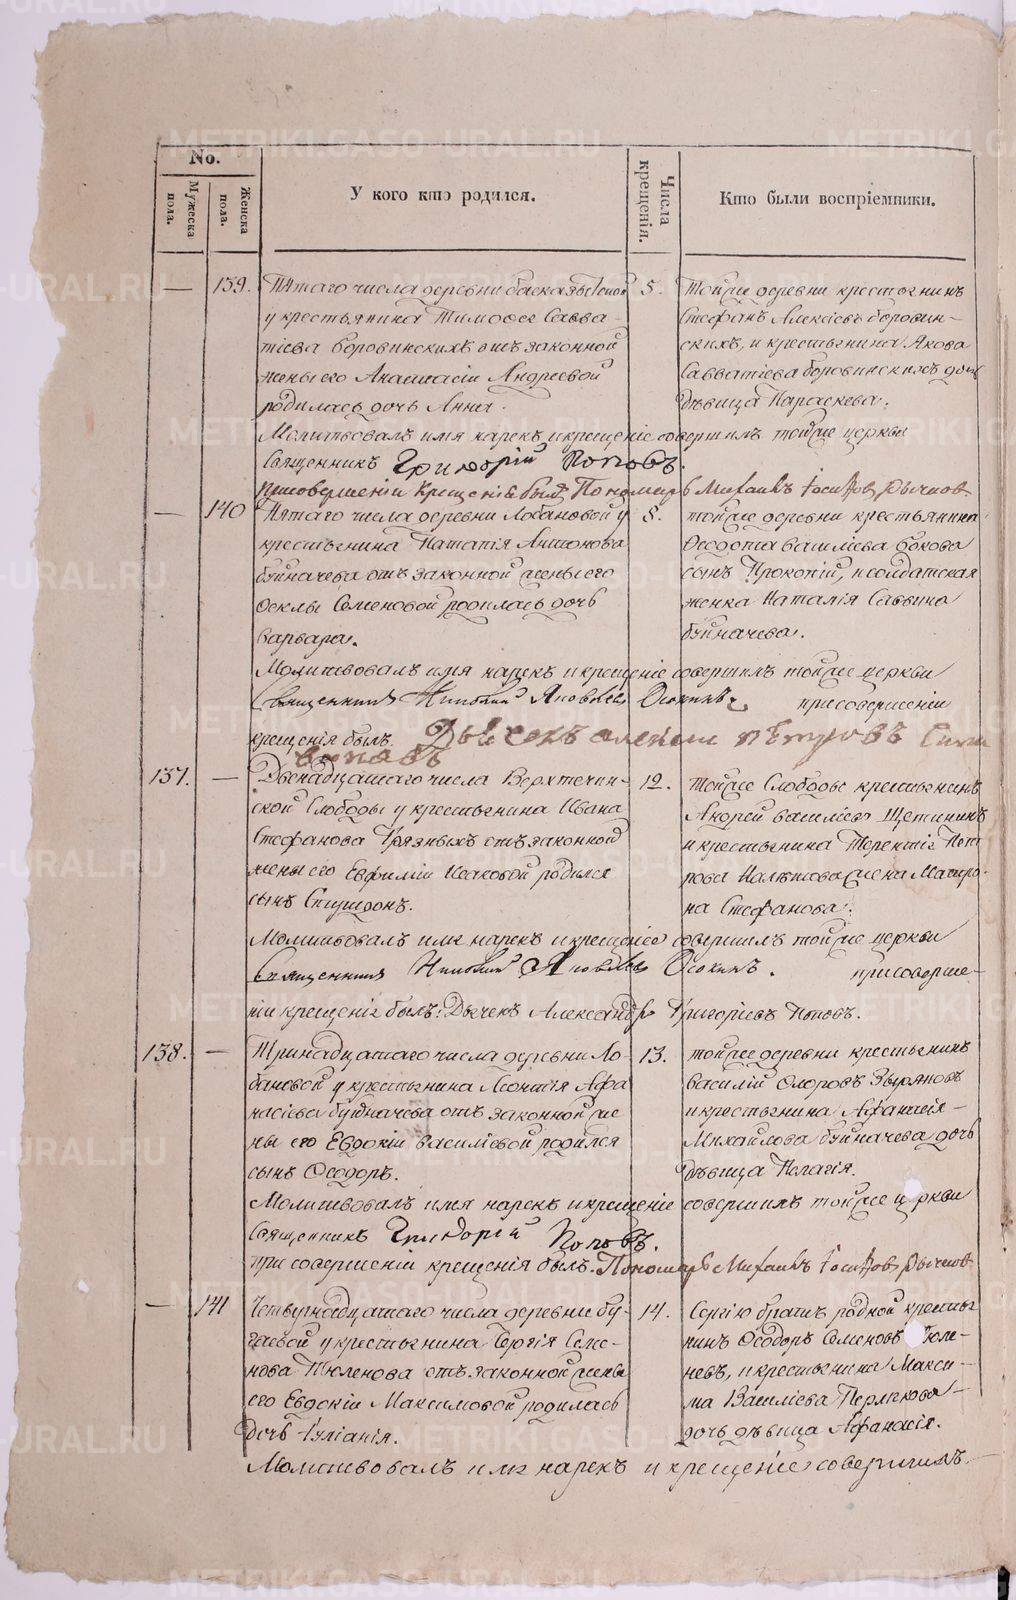 No.
Мужеска пола.
Женска пола.
У кого кто родился.
Числа крещенія.
Кто были воспріемники.
— 139. Пятаго числа деревни
у крестьянина Тимофея Савва-
тіева Боровинскихъ отъ законной
жены его Анастасіи Андреевой
родилась дочь Анна.
5. Тойже деревни крестьянинъ
Стефанъ Алексіевъ Боровин-
скихъ, и крестьянина Якова
Савватіева Боровинскихъ дочь
дѣвица Параскева.
Молитвовалъ имя нарекъ и крещеніе совершилъ тойже церкви
Священникъ Григорій Поповъ.
При совершеніи Крещенія былъ Пономарь Михаилъ Іосифов Рычков
— 140 Пятаго числа деревни Лобановой у
крестьянина Антонова
Буйначева отъ законной жены его
Феклы Семеновой родилась дочь
Варвара.
5. тойже деревни крестьянина
Феодота Василіева Бокова
сынъ Прокопій, и солдатская
женка Наталія Саввина
Буйначева.
Молитвовалъ имя нарекъ и крещеніе совершилъ тойже церкви
Священникъ Николай Яковлев Осокинъ при совершеніи
крещенія былъ Дьячекъ Алексей Петровъ
137. — Двенадцатаго числа Верхтечин-
ской Слободы у крестьянина Ивана
Стефанова Грязныхъ отъ законной
жены его Евфиміи Исаковой родился
сынъ Спиридонъ.
12. тойже Слободы крестьянинъ
Андрей Василіевъ Щетининъ
и крестьянина Терентія Пет
рова жена Матро-
на Стефанова.
Молитвовалъ имя нарекъ и крещеніе совершилъ тойже церкви
Священникъ Николай Яковлев Осокинъ. при соверше-
ніи крещенія былъ: Дьячекъ Александръ Григоріевъ Поповъ.
138. — Тринадцатаго числа деревни Ло-
бановой у крестьянина Леонтія Афа
насіева Буйначева отъ законной же
ны его Евдокіи Василіевой родился
сынъ Феодоръ.
13. тойже деревни крестьянинъ
Василій Зыряновъ
и крестьянина Афанасія
Михайлова Буйначева дочь
дѣвица Пелагія.
Молитвовалъ имя нарекъ и крещеніе совершилъ тойже церкви
Священникъ Григорій Поповъ.
при совершеніи крещенія былъ. Пономарь Михаилъ Іосифов Рычков
— 141 Четырнадцатаго числа деревни Бу-
гаевой у крестьянина Сергія Семе-
нова Тюленова отъ законной жены
его Евдокіи Максимовой родилась
дочь Іуліанія.
14. Сергію братъ родной крестья
нинъ Феодоръ Семеновъ Тюле-
невъ, и крестьянина Макси-
ма Василіева
дочь дѣвица Афанасія.
Молитвовалъ имя нарекъ и крещеніе совершилъ